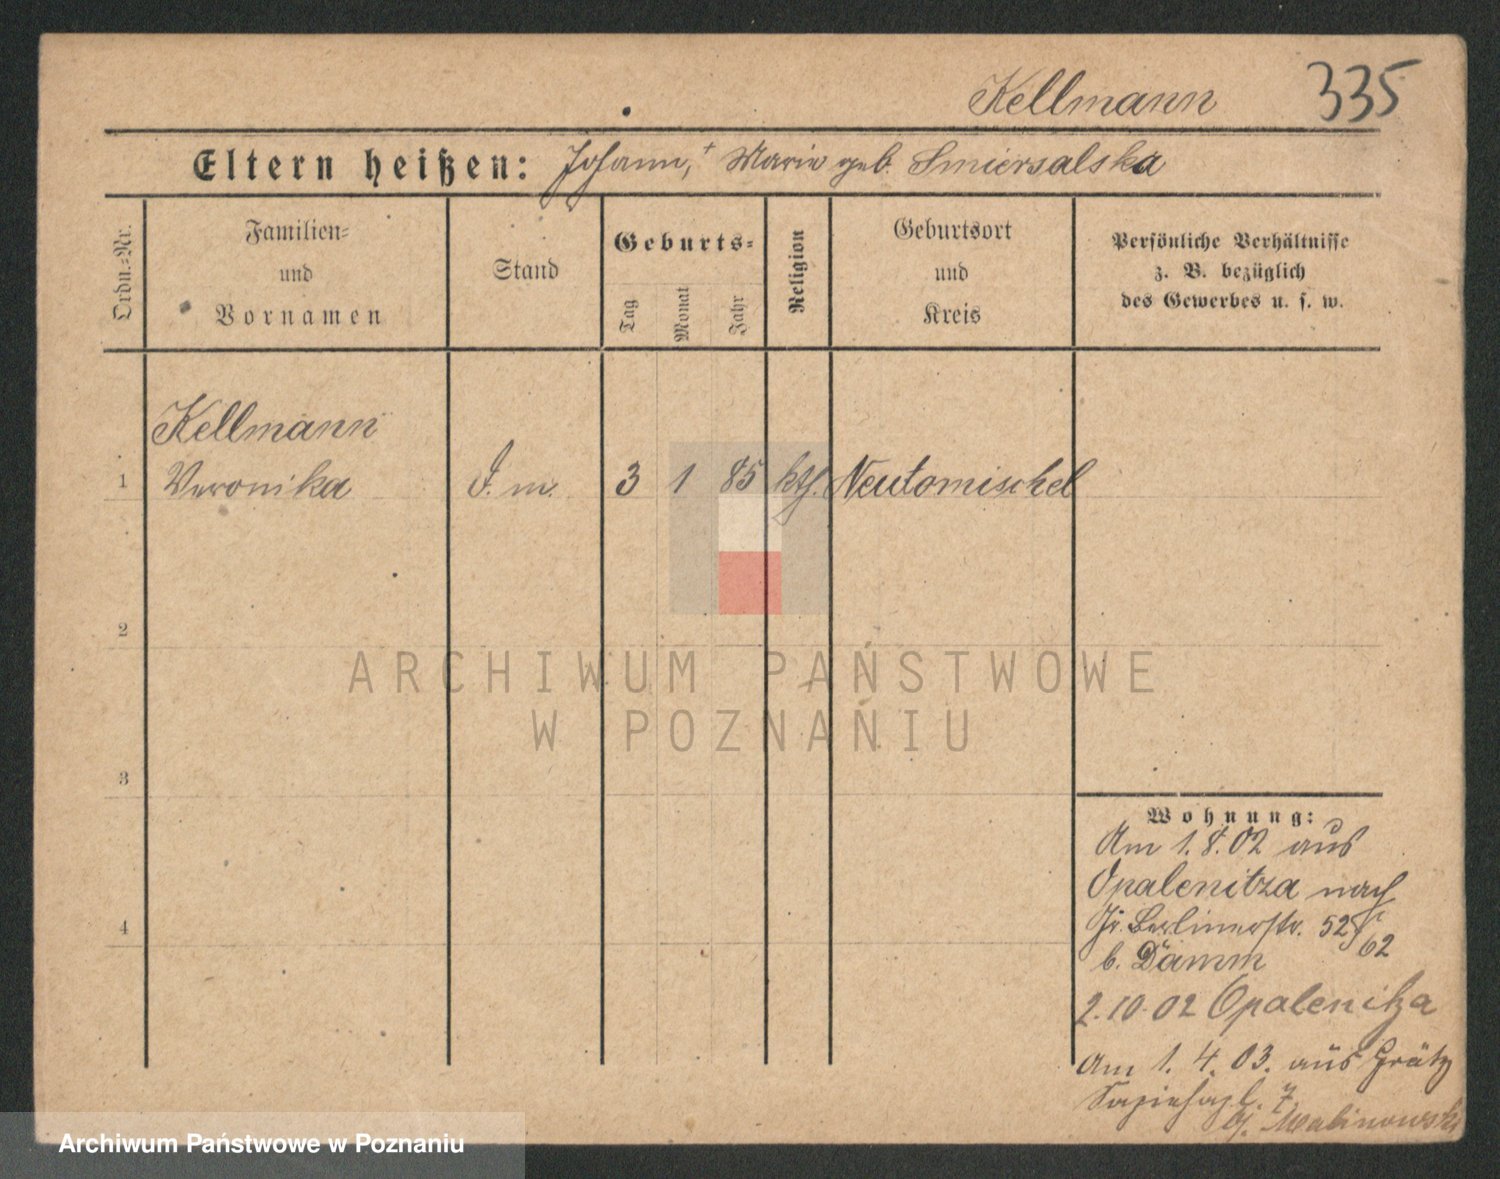 Kellmann 335
Eltern heißen: Johann,+ Marie geb. Smiersalska
Ordn.-Nr.
Familien-
und
Vornamen
Stand
Geburts-
Tag
Monat
Jahr
Religion
Geburtsort
und
Kreis
Persönliche Verhältnisse
z. B. bezüglich
des Gewerbes u. s. w.
Kellmann
1 Veronika D. m. 3 1 85 kth. Neutomischel
2
3
4
Wohnung:
Am 1.8.02 aus
Opalenitza nach
Gr. Berlinerstr. 52
62
b. Damm
2.10.02 Opalenitza
Am 1.4.03. aus Grätz
Sapiehapl. 7.
b. Malinowski
ARCHIWUM PAŃSTWOWE
W POZNANIU
Archiwum Państwowe w Poznaniu